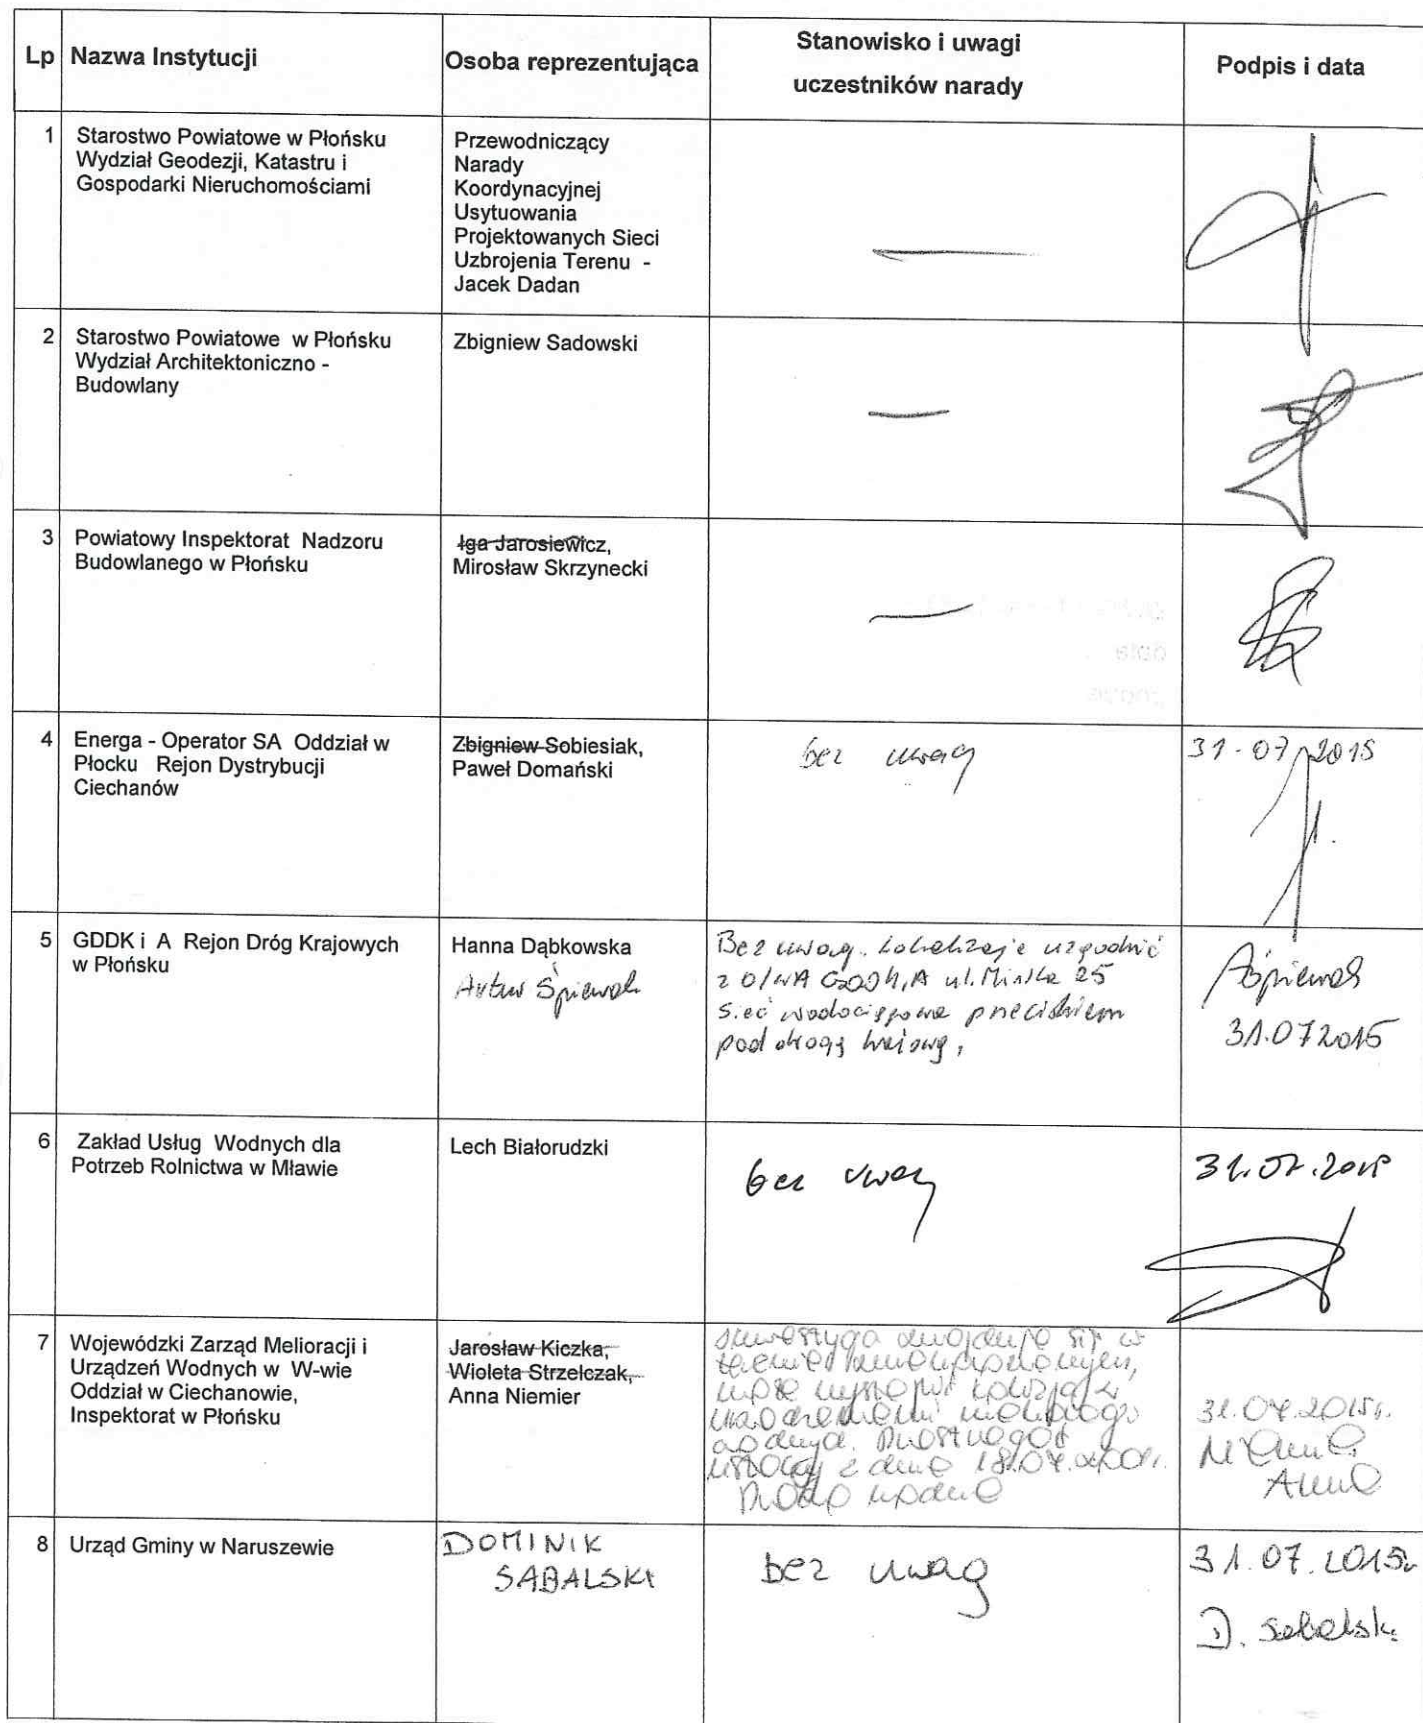 Lp
Nazwa Instytucji
Osoba reprezentująca
Stanowisko i uwagi
uczestników narady
Podpis i data
1
Starostwo Powiatowe w Płońsku
Wydział Geodezji, Katastru i
Gospodarki Nieruchomościami
Przewodniczący
Narady
Koordynacyjnej
Usytuowania
Projektowanych Sieci
Uzbrojenia Terenu -
Jacek Dadan
2
Starostwo Powiatowe w Płońsku
Wydział Architektoniczno -
Budowlany
Zbigniew Sadowski
3
Powiatowy Inspektorat Nadzoru
Budowlanego w Płońsku
Iga Jarosiewicz,
Mirosław Skrzynecki
4
Energa - Operator SA Oddział w
Płocku Rejon Dystrybucji
Ciechanów
Zbigniew Sobiesiak,
Paweł Domański
bez uwag
31-07-2015
5
GDDK i A Rejon Dróg Krajowych
w Płońsku
Hanna Dąbkowska
Artur Śpiewak
Bez uwag. Lokalizację uzgodnić
z O/WA GDDKiA ul. Mińska 25
sieć wodociągowa przeciskiem
pod drogą krajową,
AŚpiewak
31.07 2015
6
Zakład Usług Wodnych dla
Potrzeb Rolnictwa w Mławie
Lech Białorudzki
bez uwag
31.07.2015
7
Wojewódzki Zarząd Melioracji i
Urządzeń Wodnych w W-wie
Oddział w Ciechanowie,
Inspektorat w Płońsku
Jarosław Kiczka,
Wioleta Strzelczak,
Anna Niemier
znajduje się w
terenie zmeliorowanym,
może wystąpić kolizja z
urządzeniami
ustawy z dnia 18.07.2001r.
Prawo wodne
31.07.2015r.
Niemier
Anna
8
Urząd Gminy w Naruszewie
DOMINIK
SABALSKI
bez uwag
31.07.2015r
D. Sabalski